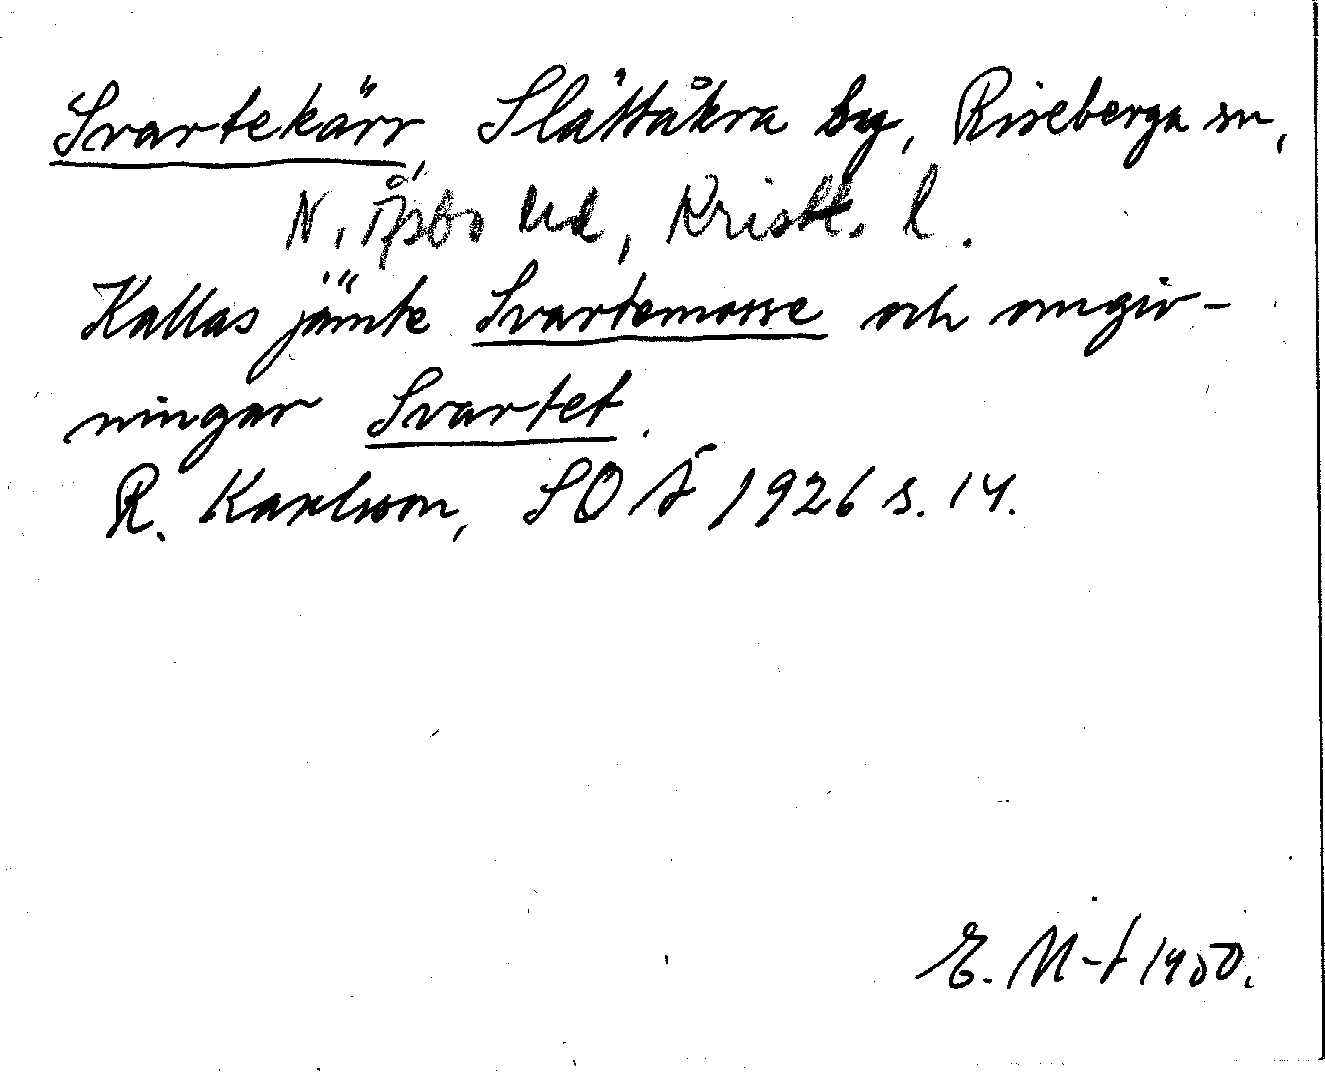 Svartekärr, Slättåkra by, Riseberga sn,
N. Åsbo hd, Kristst. l.
Kallas jämte Svartemosse och omgiv-
ningar Svartet.
R. Karlsson, SOÅ 1926 s. 14.
E. M-t 1950.